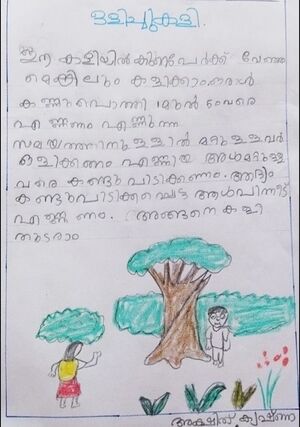 ഒളിച്ചുകളി.
ഈ കളിയിൽ കുറേപേർക്ക് വേണ്ട
മെങ്കിലും കളിക്കാം.ഒരാൾ
കണ്ണുപൊത്തി 1മുതൽ 50വരെ
എണ്ണണം എണ്ണുന്ന
സമയത്തിനുള്ളിൽ മറ്റുള്ളവർ
ഒളിക്കണം എണ്ണിയ ആൾമറ്റുള്ള
വരെ കണ്ടുപിടിക്കണം. ആദ്യം
കണ്ടുപിടിക്കപ്പെട്ട ആൾപിന്നീട്
എണ്ണണം. അങ്ങനെ കളി
തുടരാം
കൃഷ്ണ